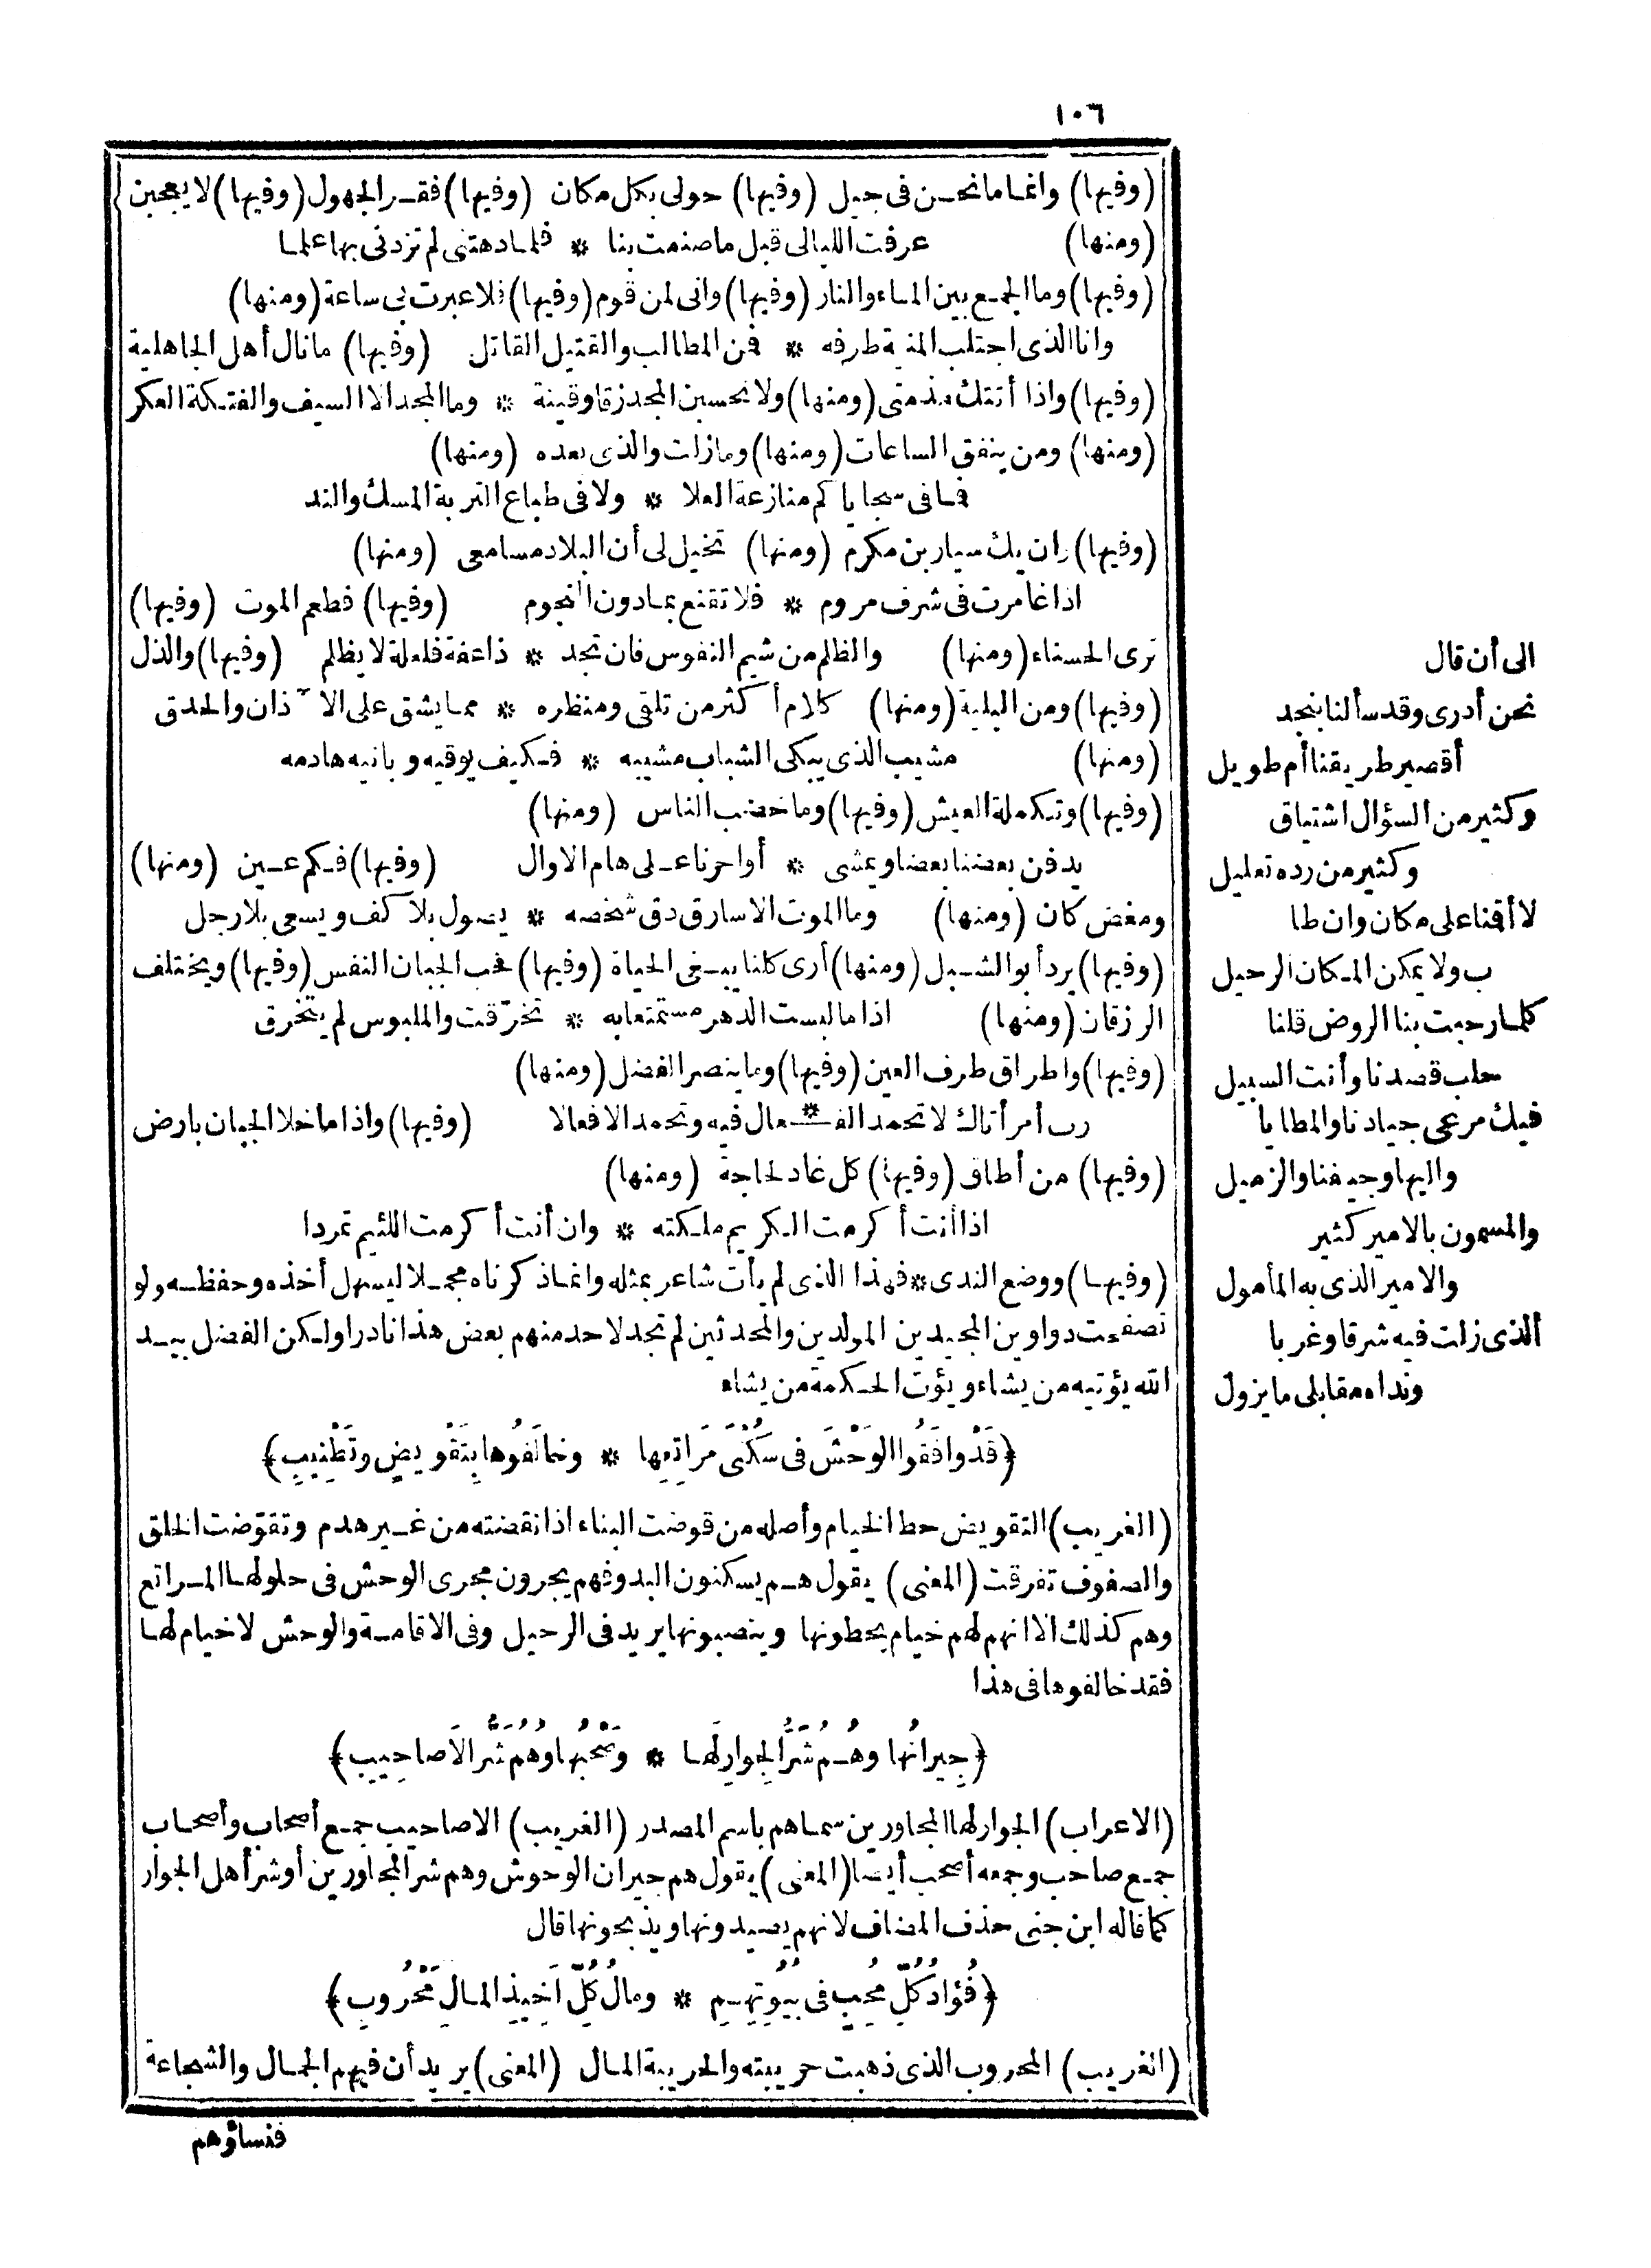 ١٠٦
(وفيها) وانما مانحن فى جيل (وفيها) حولى بكل مكان (وفيها) فقر الجهول (وفيها) لا يعجبن
(ومنها) عرفت الليالى قبل ما صنعت بنا * فلما دهتنى لم تزدنى بها علما
(وفيها) وما الجمع بين الماء والنار (وفيها) وانى لمن قوم (وفيها) فلا عبرت بى ساعة (ومنها)
وانا الذى اجتلب المنية طرفه * فمن المطالب والقتيل القاتل (وفيها) ما نال أهل الجاهلية
(وفيها) واذا أتتك مذمتى (ومنها) ولا تحسبن المجد زقا وقينة * وما المجد الا السيف والفتكة البكر
(ومنها) ومن ينفق الساعات (ومنها) وما زلت والذى بعده (ومنها)
فما فى سجاياكم منازعة العلا * ولا فى طباع التربة المسك والند
(وفيها) ان يك سيار بن مكرم (ومنها) تخيل لى أن البلاد مسامعى (ومنها)
اذا غامرت فى شرف مروم * فلا تقنع بما دون النجوم (وفيها) فطعم الموت (وفيها)
ترى الحسناء (ومنها) والظلم من شيم النفوس فان تجد * ذا عفة فلعلة لا يظلم (وفيها) والذل
(وفيها) ومن البلية (ومنها) كلام أكثر من تلقى ومنظره * مما يشق على الآذان والحدق
(ومنها) مشيب الذى يبكى الشباب مشيبه * فكيف يوقيه وبانيه هادمه
(وفيها) وتكملة العيش (وفيها) وما خضب الناس (ومنها)
يدفن بعضنا بعضا ويمشى * أواخرنا على هام الاوال (وفيها) فكم عين (ومنها)
ومغض كان (ومنها) وما الموت الا سارق دق شخصه * يصول بلا كف ويسعى بلا رجل
(وفيها) يرد أبو الشبل (ومنها) أرى كلنا يبغى الحياة (وفيها) فحب الجبان النفس (وفيها) ويختلف
الرزقان (ومنها) اذا ما لبست الدهر مستمتعا به * تخرّقت والملبوس لم يتخرق
(وفيها) واطراق طرف العين (وفيها) وما ينصر الفضل (ومنها)
رب أمر أتاك لا تحمد الفـ * ـعال فيه وتحمد الافعالا (وفيها) واذا ما خلا الجبان بارض
(وفيها) من أطاق (وفيها) كل غاد لحاجة (ومنها)
اذا أنت أكرمت الكريم ملكته * وان أنت أكرمت اللئيم تمردا
(وفيها) ووضع الندى * فهذا الذى لم يأت شاعر بمثله وانما ذكرناه مجملا ليسهل أخذه وحفظه ولو
تصفحت دواوين المجيدين المولدين والمحدثين لم تجد لاحد منهم بعض هذا نادرا ولكن الفضل بيد
الله يؤتيه من يشاء ويؤت الحكمة من يشاء
﴿قَدْ وافَقُوا الوَحْشَ فى سُكْنَى مَراتِعِها * وخالَفُوها بِتَقْويضٍ وتَطْنِيبِ﴾
(الغريب) التقويض حط الخيام وأصله من قوضت البناء اذا نقضته من غير هدم وتقوّضت الخلق
والصفوف تفرقت (المعنى) يقول هم يسكنون البدو فهم يجرون مجرى الوحش فى حلولها المراتع
وهم كذلك الا انهم لهم خيام يحطونها وينصبونها يريد فى الرحيل وفى الاقامة والوحش لا خيام لها
فقد خالفوها فى هذا
﴿جِيرانُها وهُم شَرُّ الجِوارِ لَها * وصَحْبُها وهُم شَرُّ الاَصاحِيبِ﴾
(الاعراب) الجوار لها المجاورين سماهم باسم المصدر (الغريب) الاصاحيب جمع أصحاب وأصحاب
جمع صاحب وجمعه أصحب أيضا (المعنى) يقول هم جيران الوحوش وهم شر المجاورين أو شر أهل الجوار
كما قاله ابن جنى حذف المضاف لانهم يصيدونها ويذبحونها قال
﴿فُؤادُ كُلِّ مُحِبٍ فى بُيُوتِهِمِ * ومالُ كُلِّ اَخِيذِ المالِ مَحْرُوبِ﴾
(الغريب) المحروب الذى ذهبت حريبته والحريبة المال (المعنى) يريد أن فيهم الجمال والشجاعة
فنساؤهم
الى أن قال
نحن أدرى وقد سألنا بنجد
أقصير طريقنا أم طويل
وكثير من السؤال اشتياق
وكثير من رده تعليل
لا أقمنا على مكان وان طا
ب ولا يمكن المكان الرحيل
كلما رحبت بنا الروض قلنا
حلب قصدنا وأنت السبيل
فيك مرعى جيادنا والمطايا
واليها وجيفنا والزميل
والمسمون بالامير كثير
والامير الذى به المأمول
ألذى زلت فيه شرقا وغربا
ونداه مقابلى ما يزول